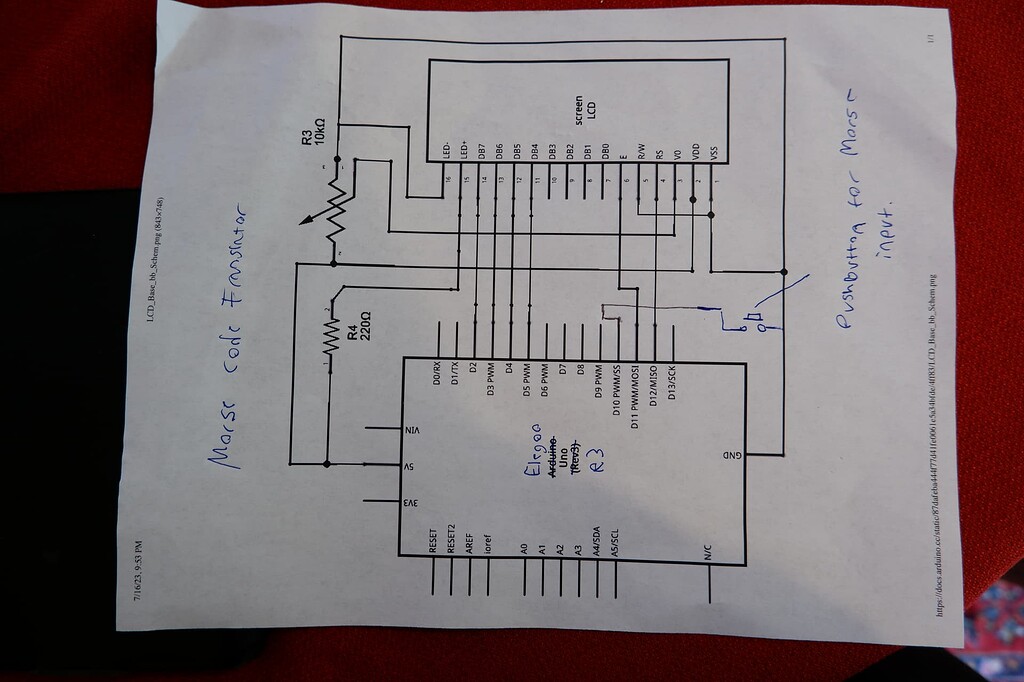 7/16/23, 9:53 PM
LCD_Base_bb_Schem.png (843×748)
Morse Code Translator
R3
10kΩ
R4
220Ω
screen
LCD
LED-
LED+
DB7
DB6
DB5
DB4
DB3
DB2
DB1
DB0
E
R/W
RS
V0
VDD
VSS
16
15
14
13
12
11
10
9
8
7
6
5
4
3
2
1
D0/RX
D1/TX
D2
D3 PWM
D4
D5 PWM
D6 PWM
D7
D8
D9 PWM
D10 PWM/SS
D11 PWM/MOSI
D12/MISO
D13/SCK
VIN
5V
3V3
Elegoo
Arduino
Uno
(Rev3)
R3
GND
RESET
RESET2
AREF
ioref
A0
A1
A2
A3
A4/SDA
A5/SCL
N/C
Pushbutton for Morse
input.
1/1